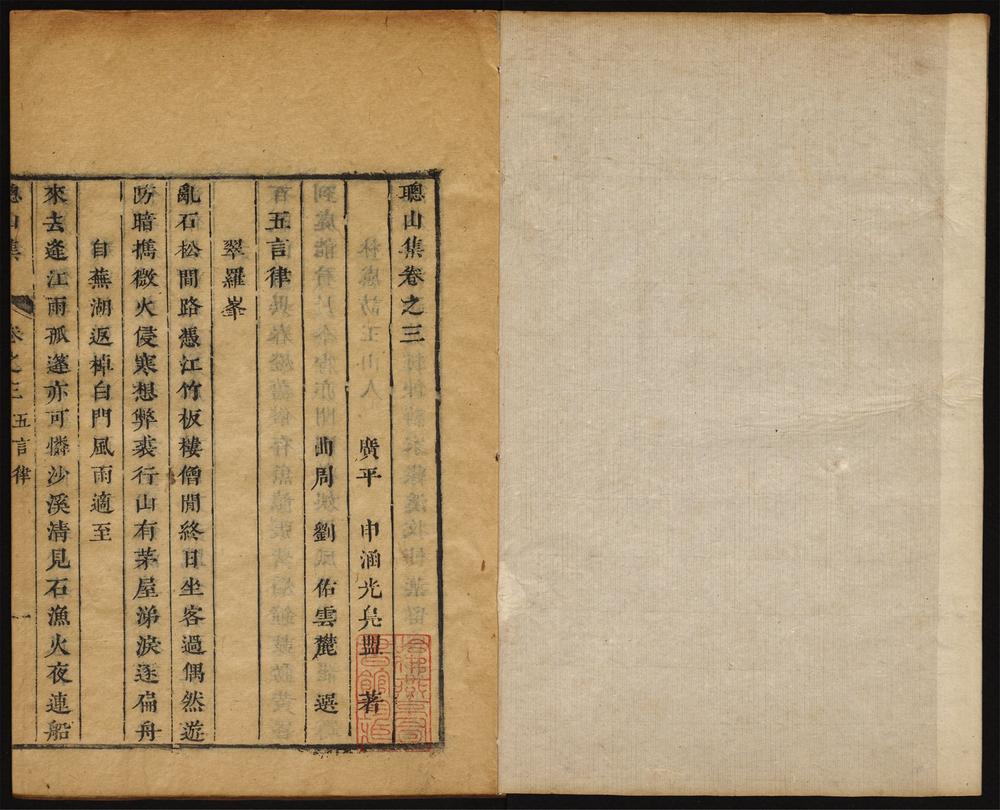 聰山集卷之三
廣平 申涵光鳧盟 著
曲周 劉佑雲麓 選
五言律
翠羅峯
亂石松間路憑江竹板樓僧閒終日坐客過偶然遊
防暗攜微火侵寒想弊裘行山有茅屋涕淚逐扁舟
自蕪湖返棹白門風雨適至
來去逢江雨孤蓬亦可憐沙溪清見石漁火夜連船
聰山集 卷之三 五言律 一